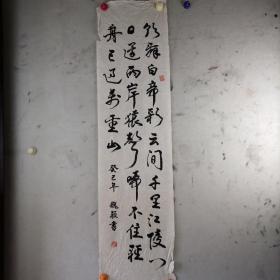 朝辞白帝彩云间千里江陵一
日還两岸猿聲啼不住轻
舟已过萬重山
癸巳年 魏毅書